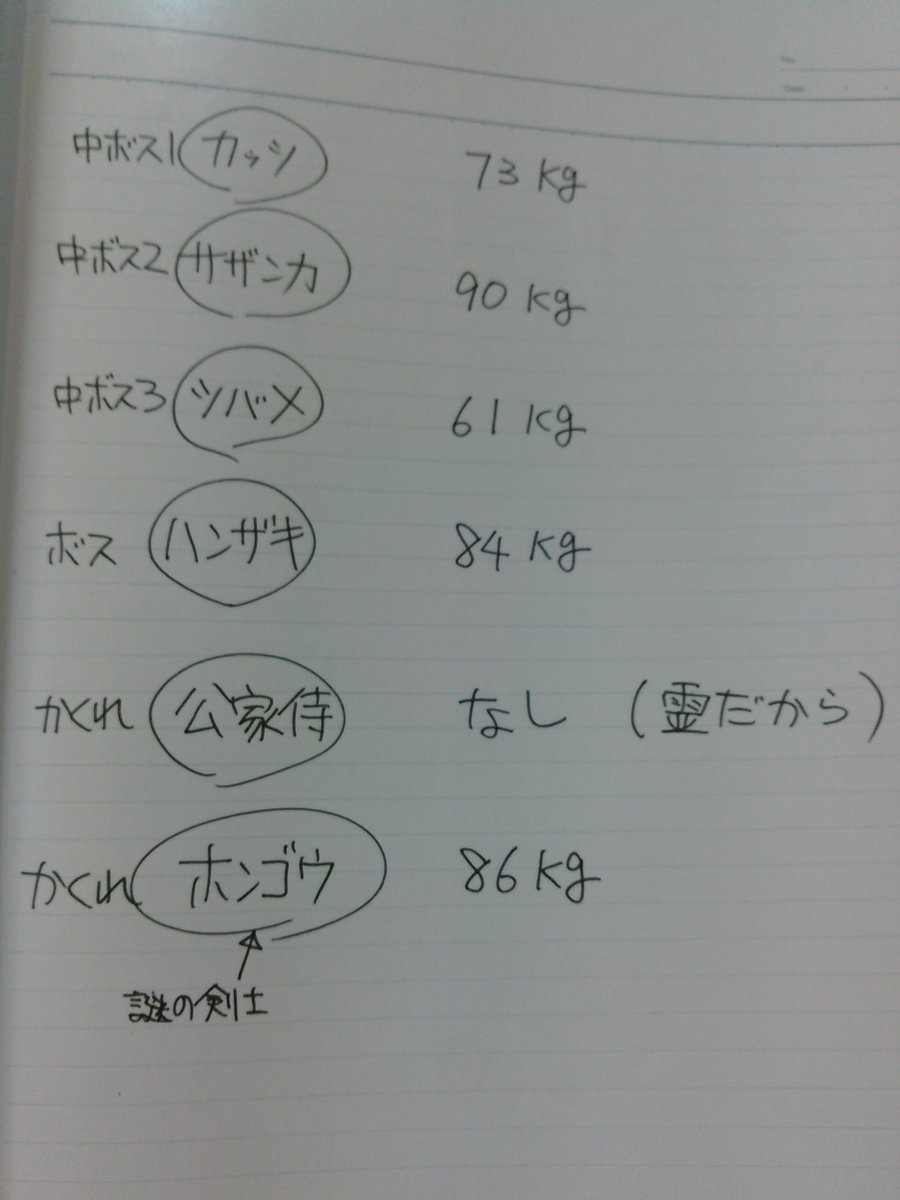 No.
Date
中ボス1 カッシ 73 kg
中ボス2 サザンカ 90 kg
中ボス3 ツバメ 61 kg
ボス ハンザキ 84 kg
かくれ 公家侍 なし (霊だから)
かくれ ホンゴウ 86 kg
謎の剣士